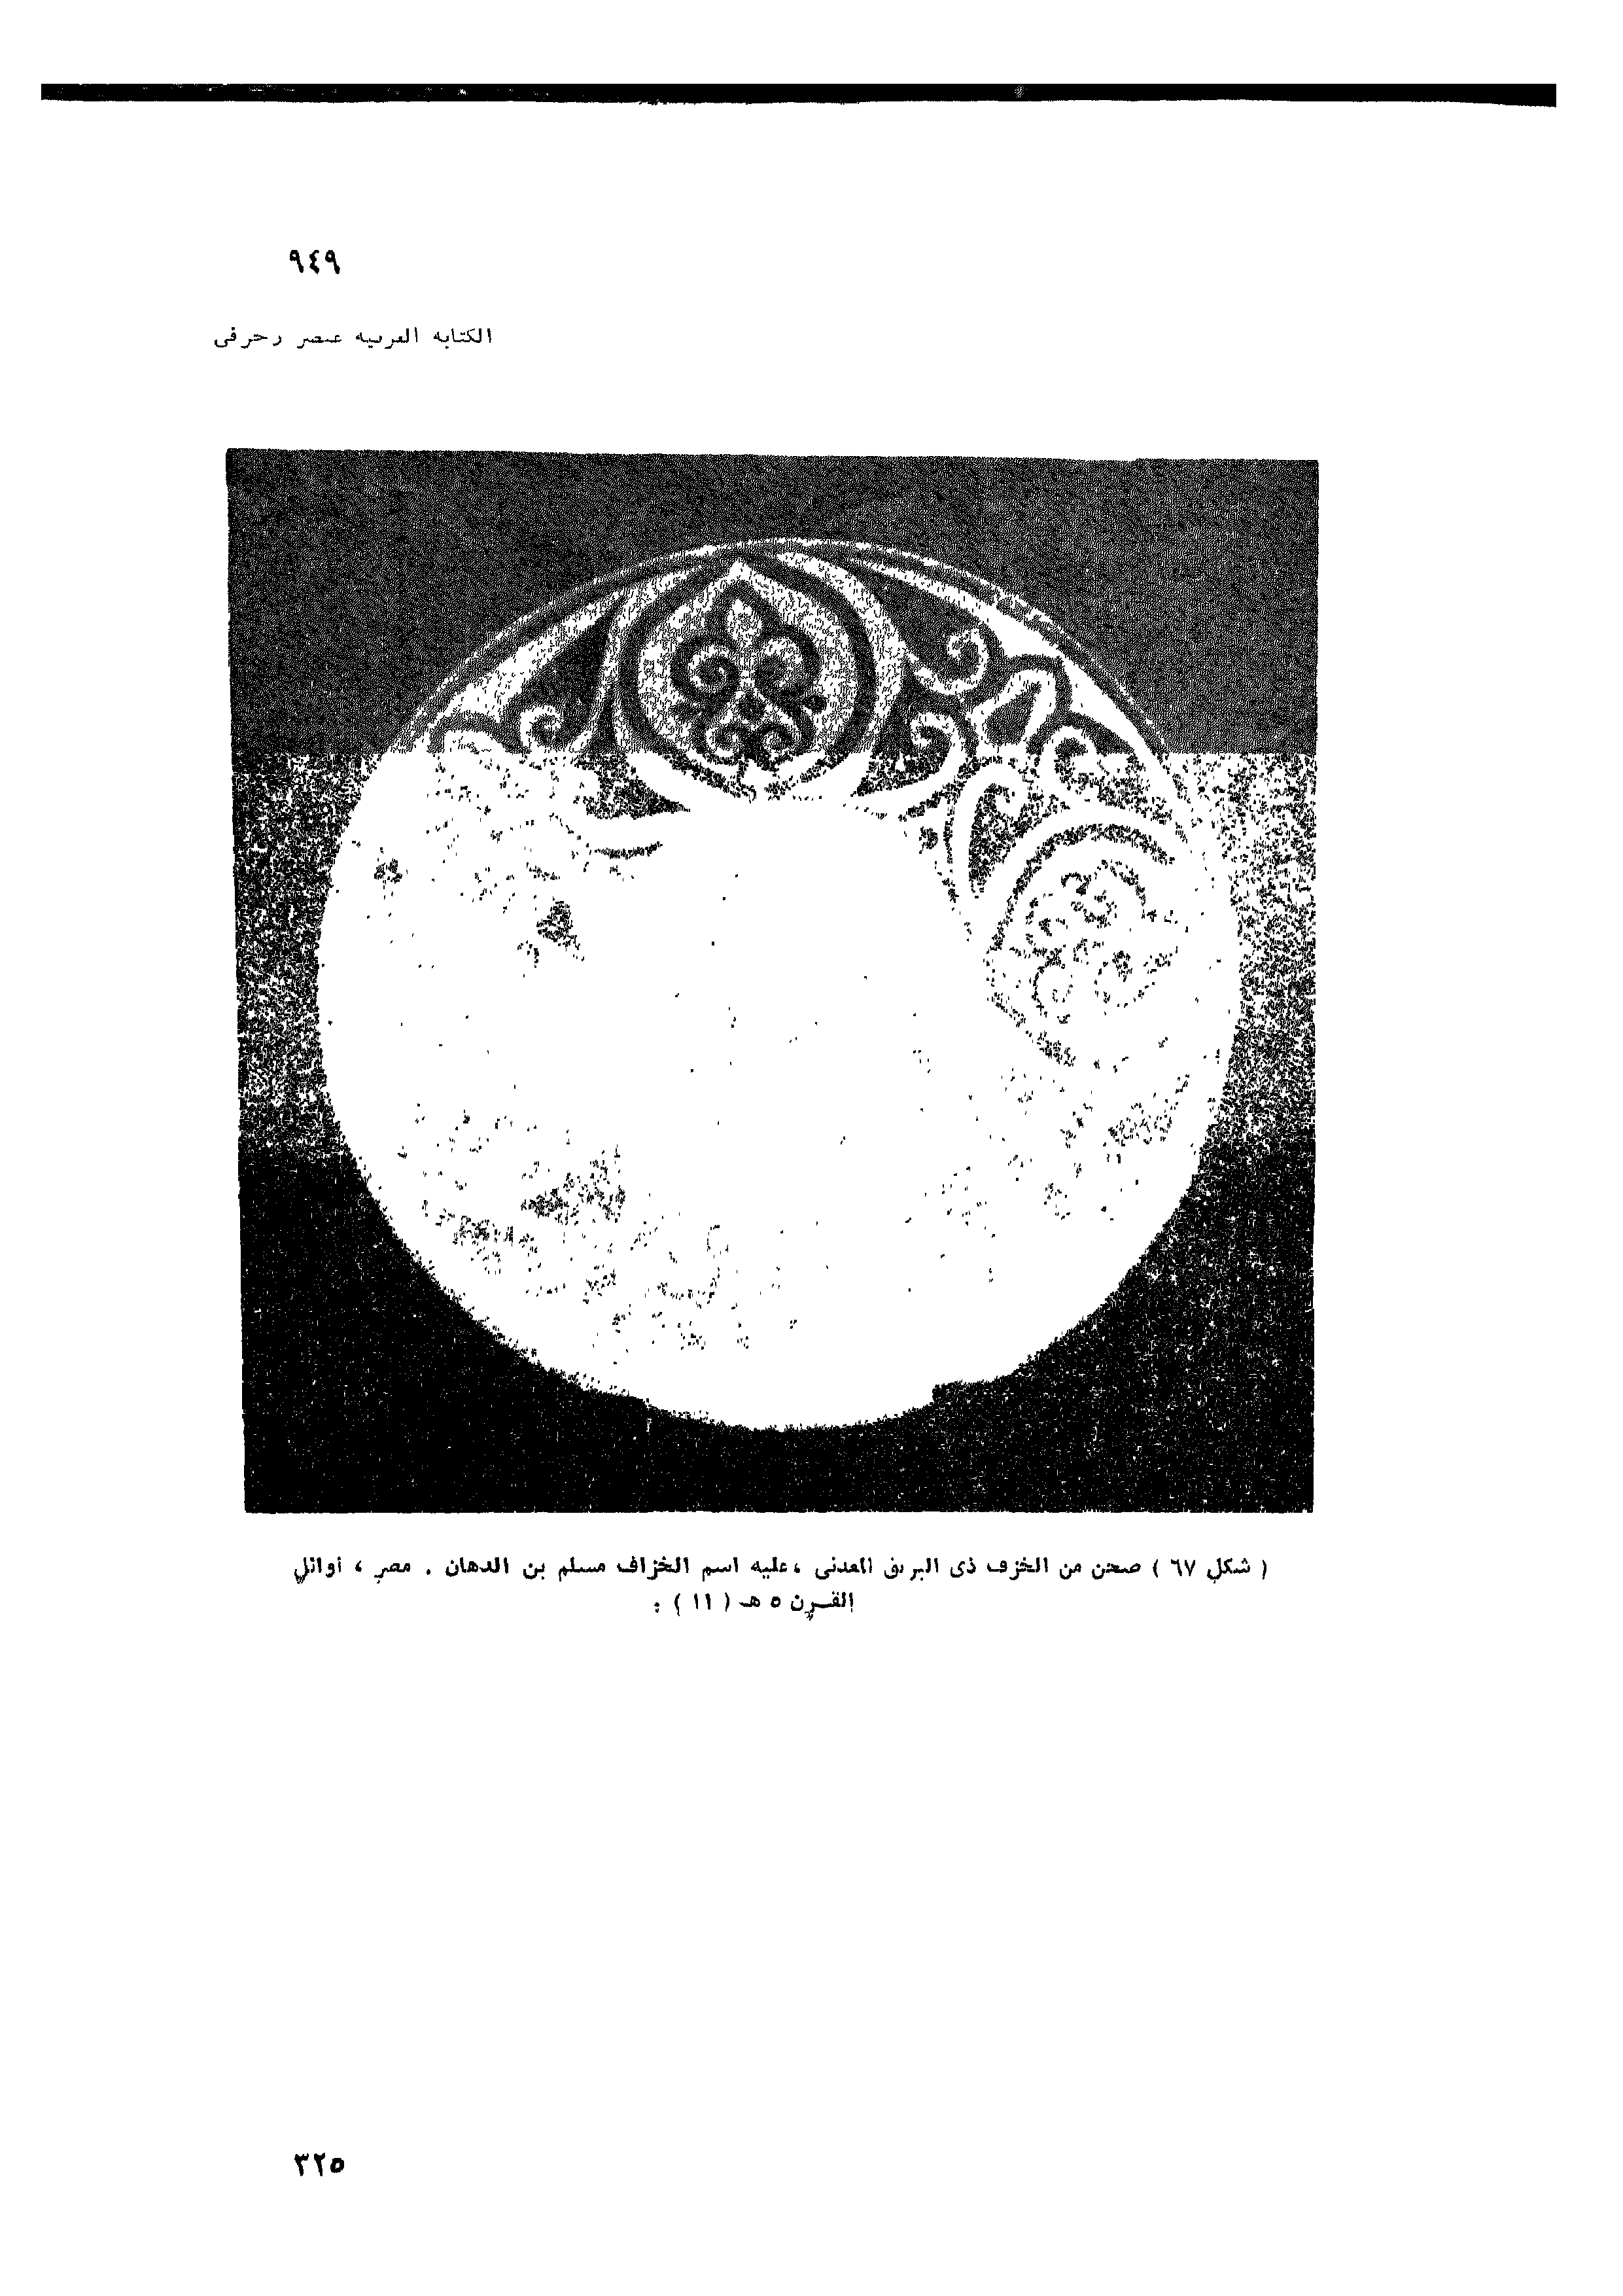 ٩٤٩
الكتابة العربية عنصر زخرفى
( شكل ٦٧ ) صحن من الخزف ذى البريق المعدنى ، عليه اسم الخزاف مسلم بن الدهان . مصر ، أوائل
القرن ٥ هـ ( ١١ ) :
٣٢٥